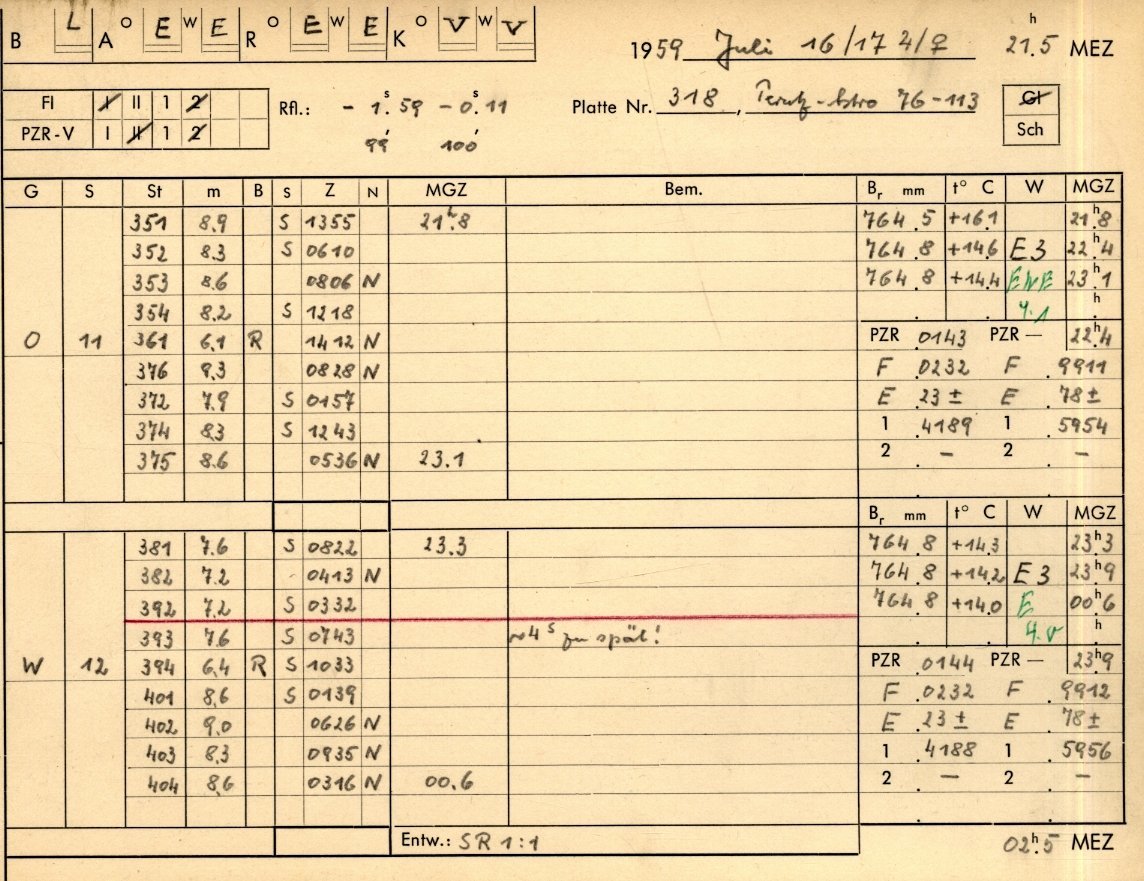 B L A o E w E R o E w E K o V w V
1959 Juli 16/17 4/♀ 21h.5 MEZ
FI I II 1 2
PZR-V I II 1 2
Rfl.: - 1s.59 - 0s.11
99' 100'
Platte Nr. 318, 76-113
Gl
Sch
G S St m B S Z N MGZ Bem. Br mm t° C W MGZ
351 8.9 S 1355 21h.8 764.5 +16.1 21h.8
352 8.3 S 0610 764.8 +14.6 E3 22h.4
353 8.6 0806 N 764.8 +14.4 ENE 23h.1
354 8.2 S 1218 4.1 h
O 11 361 6.1 R 1412 N PZR .0143 PZR — 22h.4
376 9.3 0828 N F .0232 F .9911
372 7.9 S 0157 E .23 ± E .78 ±
374 8.3 S 1243 1 .4189 1 .5954
375 8.6 0536 N 23.1 2 — 2 —
Br mm t° C W MGZ
381 7.6 S 0822 23.3 764.8 +14.3 23h.3
382 7.2 0413 N 764.8 +14.2 E3 23h.9
392 7.2 S 0332 764.8 +14.0 E 00h.6
393 7.6 S 0743 ~4s zu spät! 4.0 h
W 12 394 6.4 R S 1033 PZR .0144 PZR — 23h.9
401 8.6 S 0139 F .0232 F .9912
402 9.0 0626 N E .23 ± E .78 ±
403 8.3 0935 N 1 .4188 1 .5956
404 8.6 0316 N 00.6 2 — 2 —
Entw.: SR 1:1 02h.5 MEZ